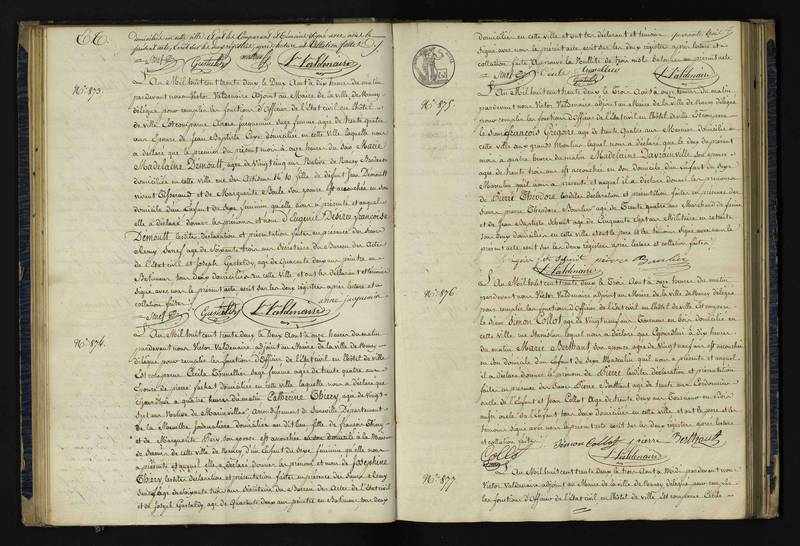 domiciliés en cette ville. Et ont les Comparant et Témoins Signé avec nous le
présent acte, écrit sur les deux registres, après lecture et Collation faite.
Gasteldy L. Valdenaire
N.º 873.
L'An Mil huit cent trente deux le Deux Août à onze heures du matin
pardevant nous Victor Valdenaire Adjoint au Maire de la ville de Nancy
délégué pour remplir les fonctions d'Officier de l'état civil en l'hôtel
de ville. Est comparue Anne Jacquemin Sage femme agée de trente quatre
ans Epouse de Jean Baptiste domiciliée en cette ville laquelle nous
a déclaré que le premier du présent mois à onze heures du soir Marie
Madelaine Demoult, agée de Vingt cinq ans Native de Nancy Brodeuse
domiciliée en cette ville rue des Artisans N.º 10 fille de défunt Jean Demoult
vivant Tisserand et de Marguerite Boule son épouse est accouchée en son
domicile d'un Enfant du Sexe féminin qu'elle nous a présenté et auquel
elle a déclaré donner les prénoms et nom d'Eugénie Désirée françoise
Demoult. Lesdites déclaration et présentation faites en présence des Sieurs
Remy Senef agé de Soixante trois ans Secrétaire du Bureau des Actes
de l'Etat civil et Joseph Gasteldy agé de Quarante deux ans peintre en
Bâtiment tous deux domiciliés en cette Ville et ont les déclarant et témoins
Signé avec nous le présent acte écrit sur les deux registres après lecture et
collation faite.
anne jacquemin
Gasteldy L. Valdenaire
N.º 874.
L'An Mil huit cent trente deux le Deux Août à onze heures du matin
pardevant nous Victor Valdenaire adjoint au Maire de la ville de Nancy
délégué pour remplir les fonctions d'Officier de l'état civil en l'hôtel de ville
Est comparue Cécile Sage femme agée de trente quatre ans
Epouse de pierre domiciliée en cette ville laquelle nous a déclaré que
cejourd'hui à quatre heures du matin Catherine Thiery agée de vingt
Sept ans Native de Marainviller Arrondissement de Lunéville Département
de la Meurthe Journalière domiciliée au dit lieu fille de françois Thiery
et de Marguerite son épouse est accouchée en la Maison
de Secours de cette ville de Nancy d'un Enfant du Sexe féminin qu'elle nous
a présenté et auquel elle a déclaré donner les prénom et nom de Joséphine
Thiery Lesdites déclaration et présentation faites en présence des Sieurs Remy
Senef agé de Soixante trois ans Secrétaire du Bureau des Actes de l'état civil
et de Joseph Gasteldy agé de Quarante deux ans peintre en Bâtiment, tous deux
domiciliés en cette ville et ont les déclarant et témoins
Signé avec nous le présent acte écrit sur les deux registres après lecture et
collation faite Approuvé la Nullité de trois mots
Cécile
Gasteldy L. Valdenaire
N.º 875.
L'An Mil huit cent trente deux le Trois Août à onze heures du matin
pardevant nous Victor Valdenaire adjoint au Maire de la ville de Nancy délégué
pour remplir les fonctions d'Officier de l'Etat civil en l'hôtel de ville. Est comparu
le Sieur François Grégoire agé de trente Quatre ans Meunier Domicilié en cette
ville aux grands Moulins lequel nous a déclaré que le deux du présent
mois à quatre heures du matin Madelaine son épouse
agée de trente trois ans est accouchée en son domicile d'un Enfant du Sexe
Masculin qu'il nous a présenté et auquel il a déclaré donner les prénoms
de Pierre Théodore. Lesdites déclaration et présentation faites en présence des
Sieurs pierre Théodore agé de Trente quatre ans Marchand de farine
et de Jean Baptiste Schmit agé de Cinquante Sept ans Militaire en retraite
tous deux domiciliés en cette ville et ont le père et les témoins Signé avec nous le
présent acte écrit sur les deux registres après lecture et collation faite.
pierre
L. Valdenaire
N.º 876.
L'An Mil huit cent trente deux le Trois Août à onze heures du matin
pardevant nous Victor Valdenaire adjoint au Maire de la ville de Nancy délégué
pour remplir les fonctions d'Officier de l'Etat civil en l'hôtel de ville. Est comparu
le Sieur Simon Collot agé de Vingt neuf ans domicilié en cette
ville lequel nous a déclaré que à Six heures
du matin Marie Berthaut son épouse agée de Vingt neuf ans est accouchée
en son domicile d'un Enfant du Sexe Masculin qu'il nous a présenté et auquel
il a déclaré donner le prénom de Pierre Lesdites déclaration et présentation
faites en présence des Sieurs Pierre Berthaut agé de trente un ans Cordonnier
oncle de l'Enfant et Jean Collot Agé de trente deux ans
aussi oncle de l'Enfant tous deux domiciliés en cette ville et ont le père et les
témoins Signé avec nous le présent acte écrit sur les deux registres après lecture
et collation faite.
Simon Collot pierre Berthaut
Collot L. Valdenaire
N.º 877
L'An Mil huit cent trente deux le trois Août à Midi pardevant nous
Victor Valdenaire adjoint au Maire de la ville de Nancy délégué pour remplir
les fonctions d'Officier de l'Etat civil en l'hôtel de ville. Est comparue Cécile